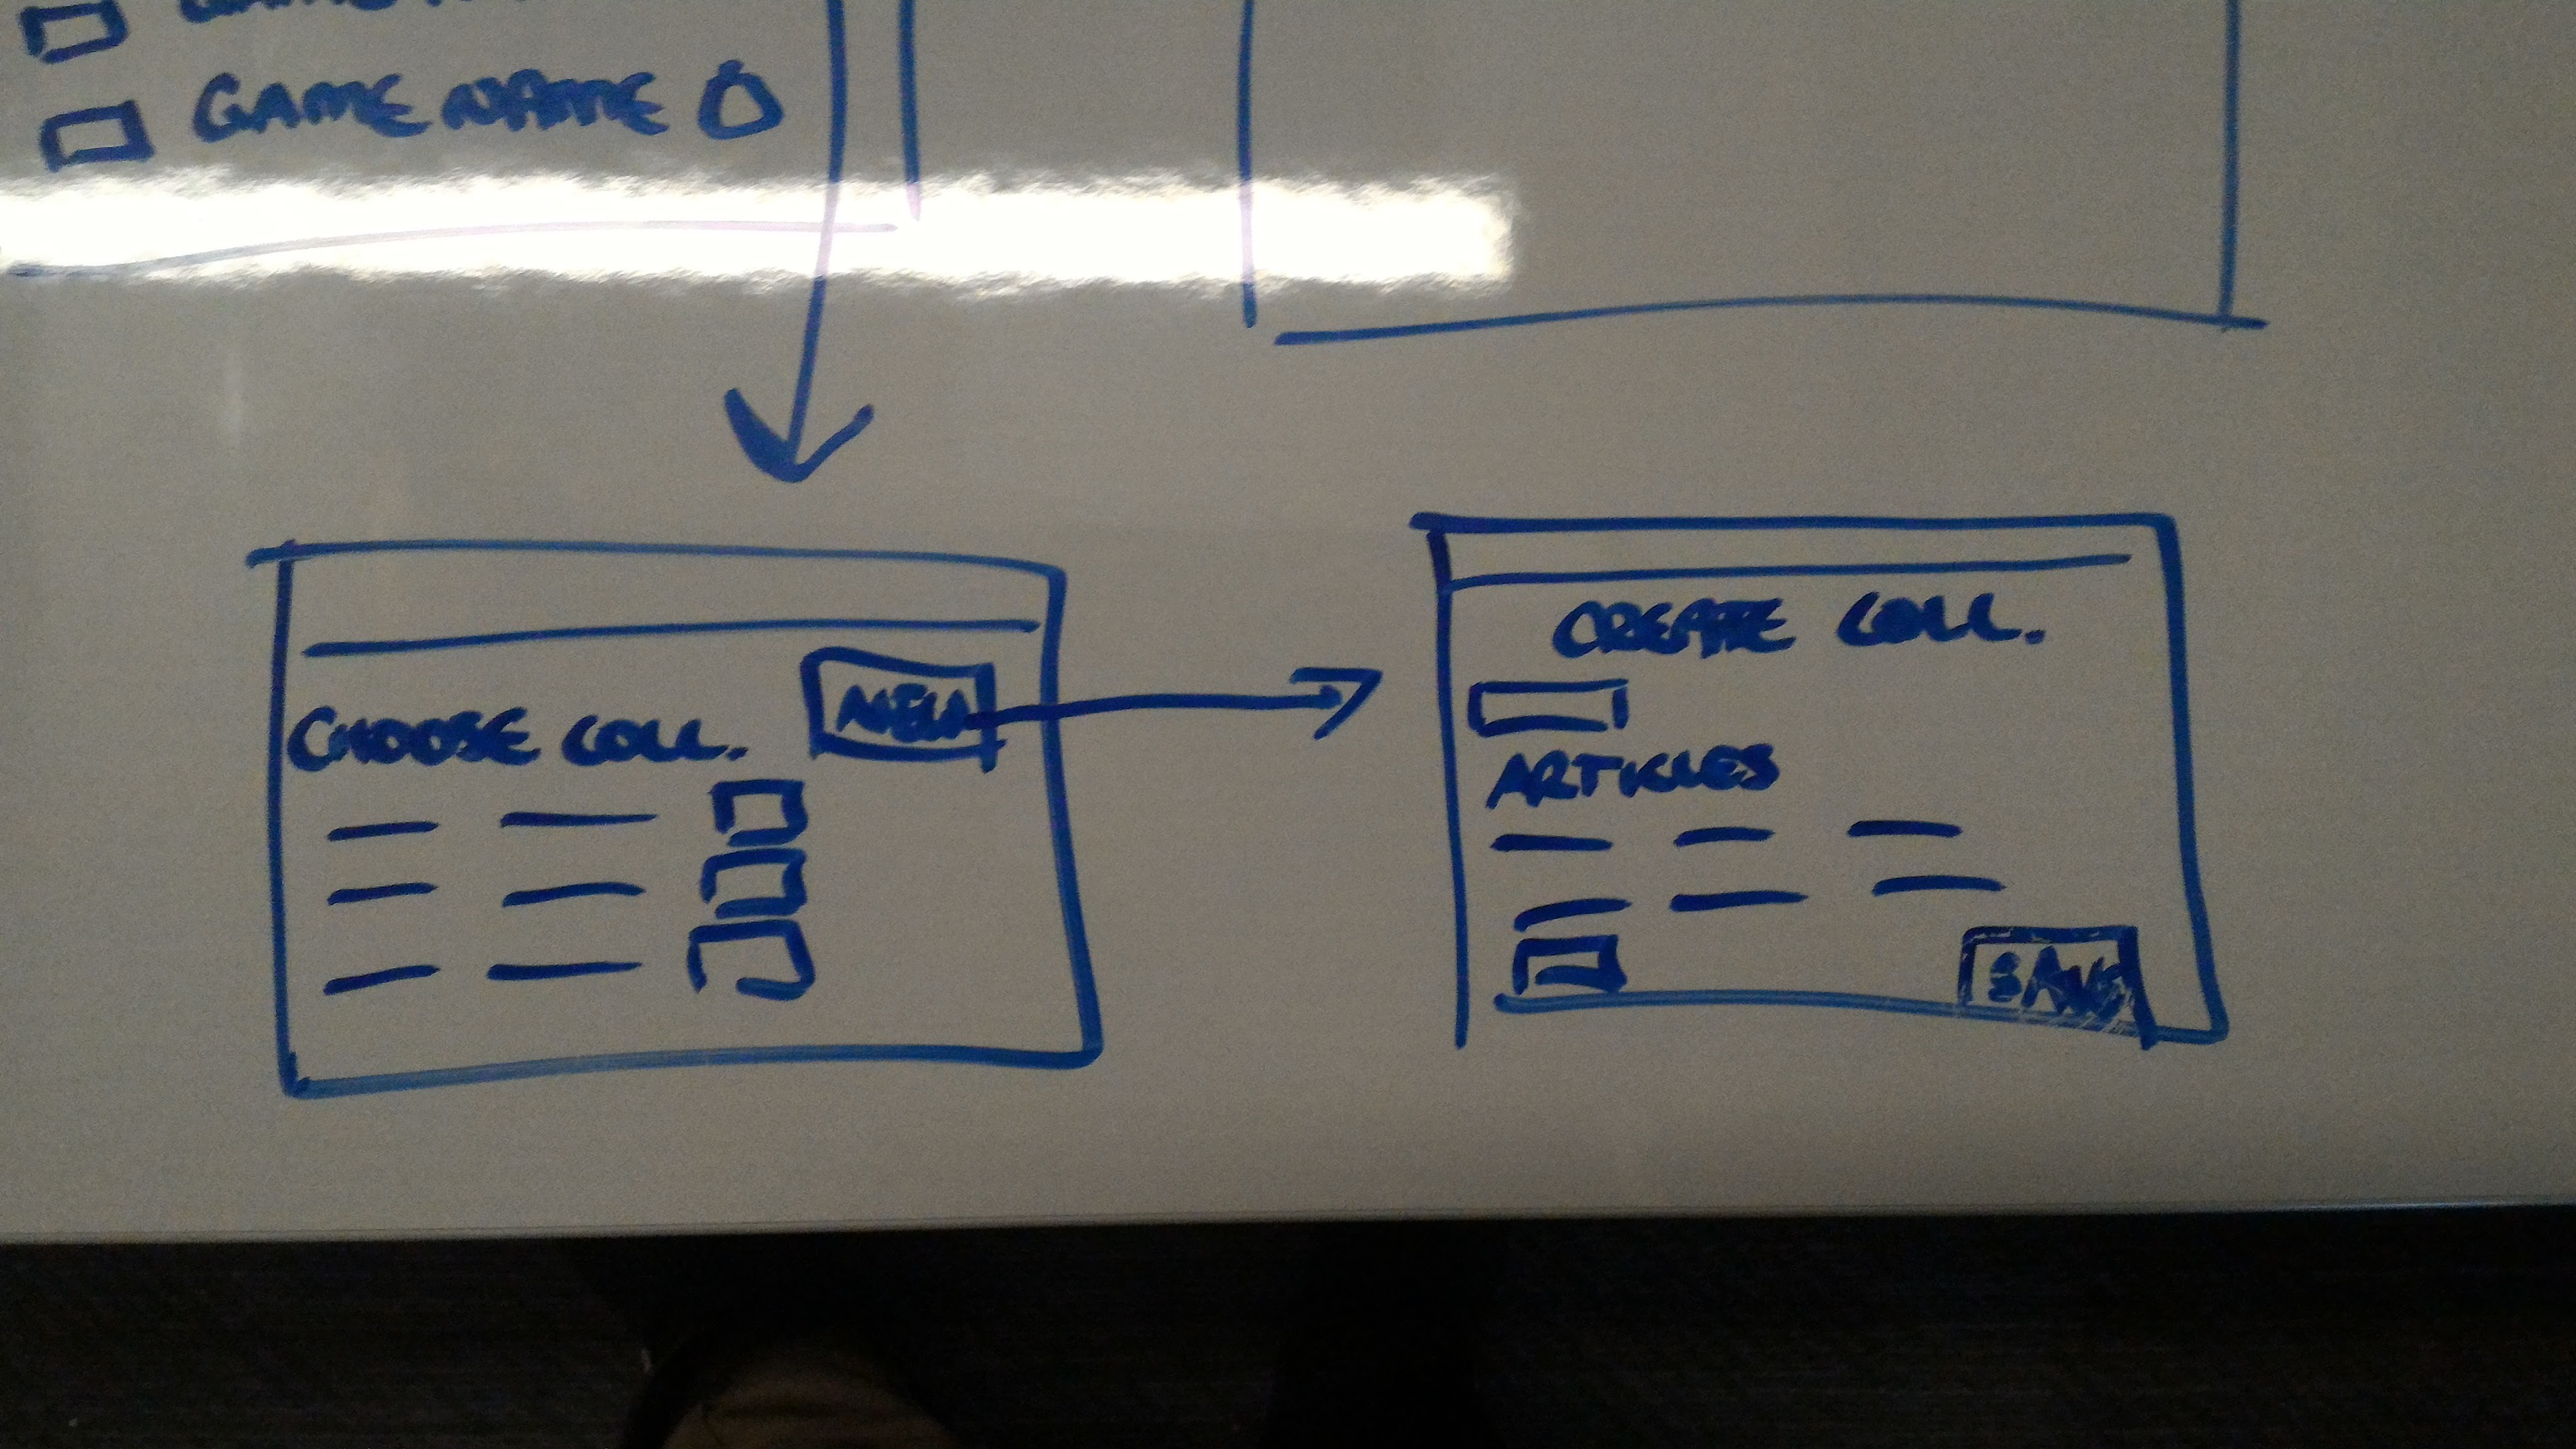 GAME NAME
CHOOSE COLL.
NEW
CREATE COLL.
ARTICLES
SAVE